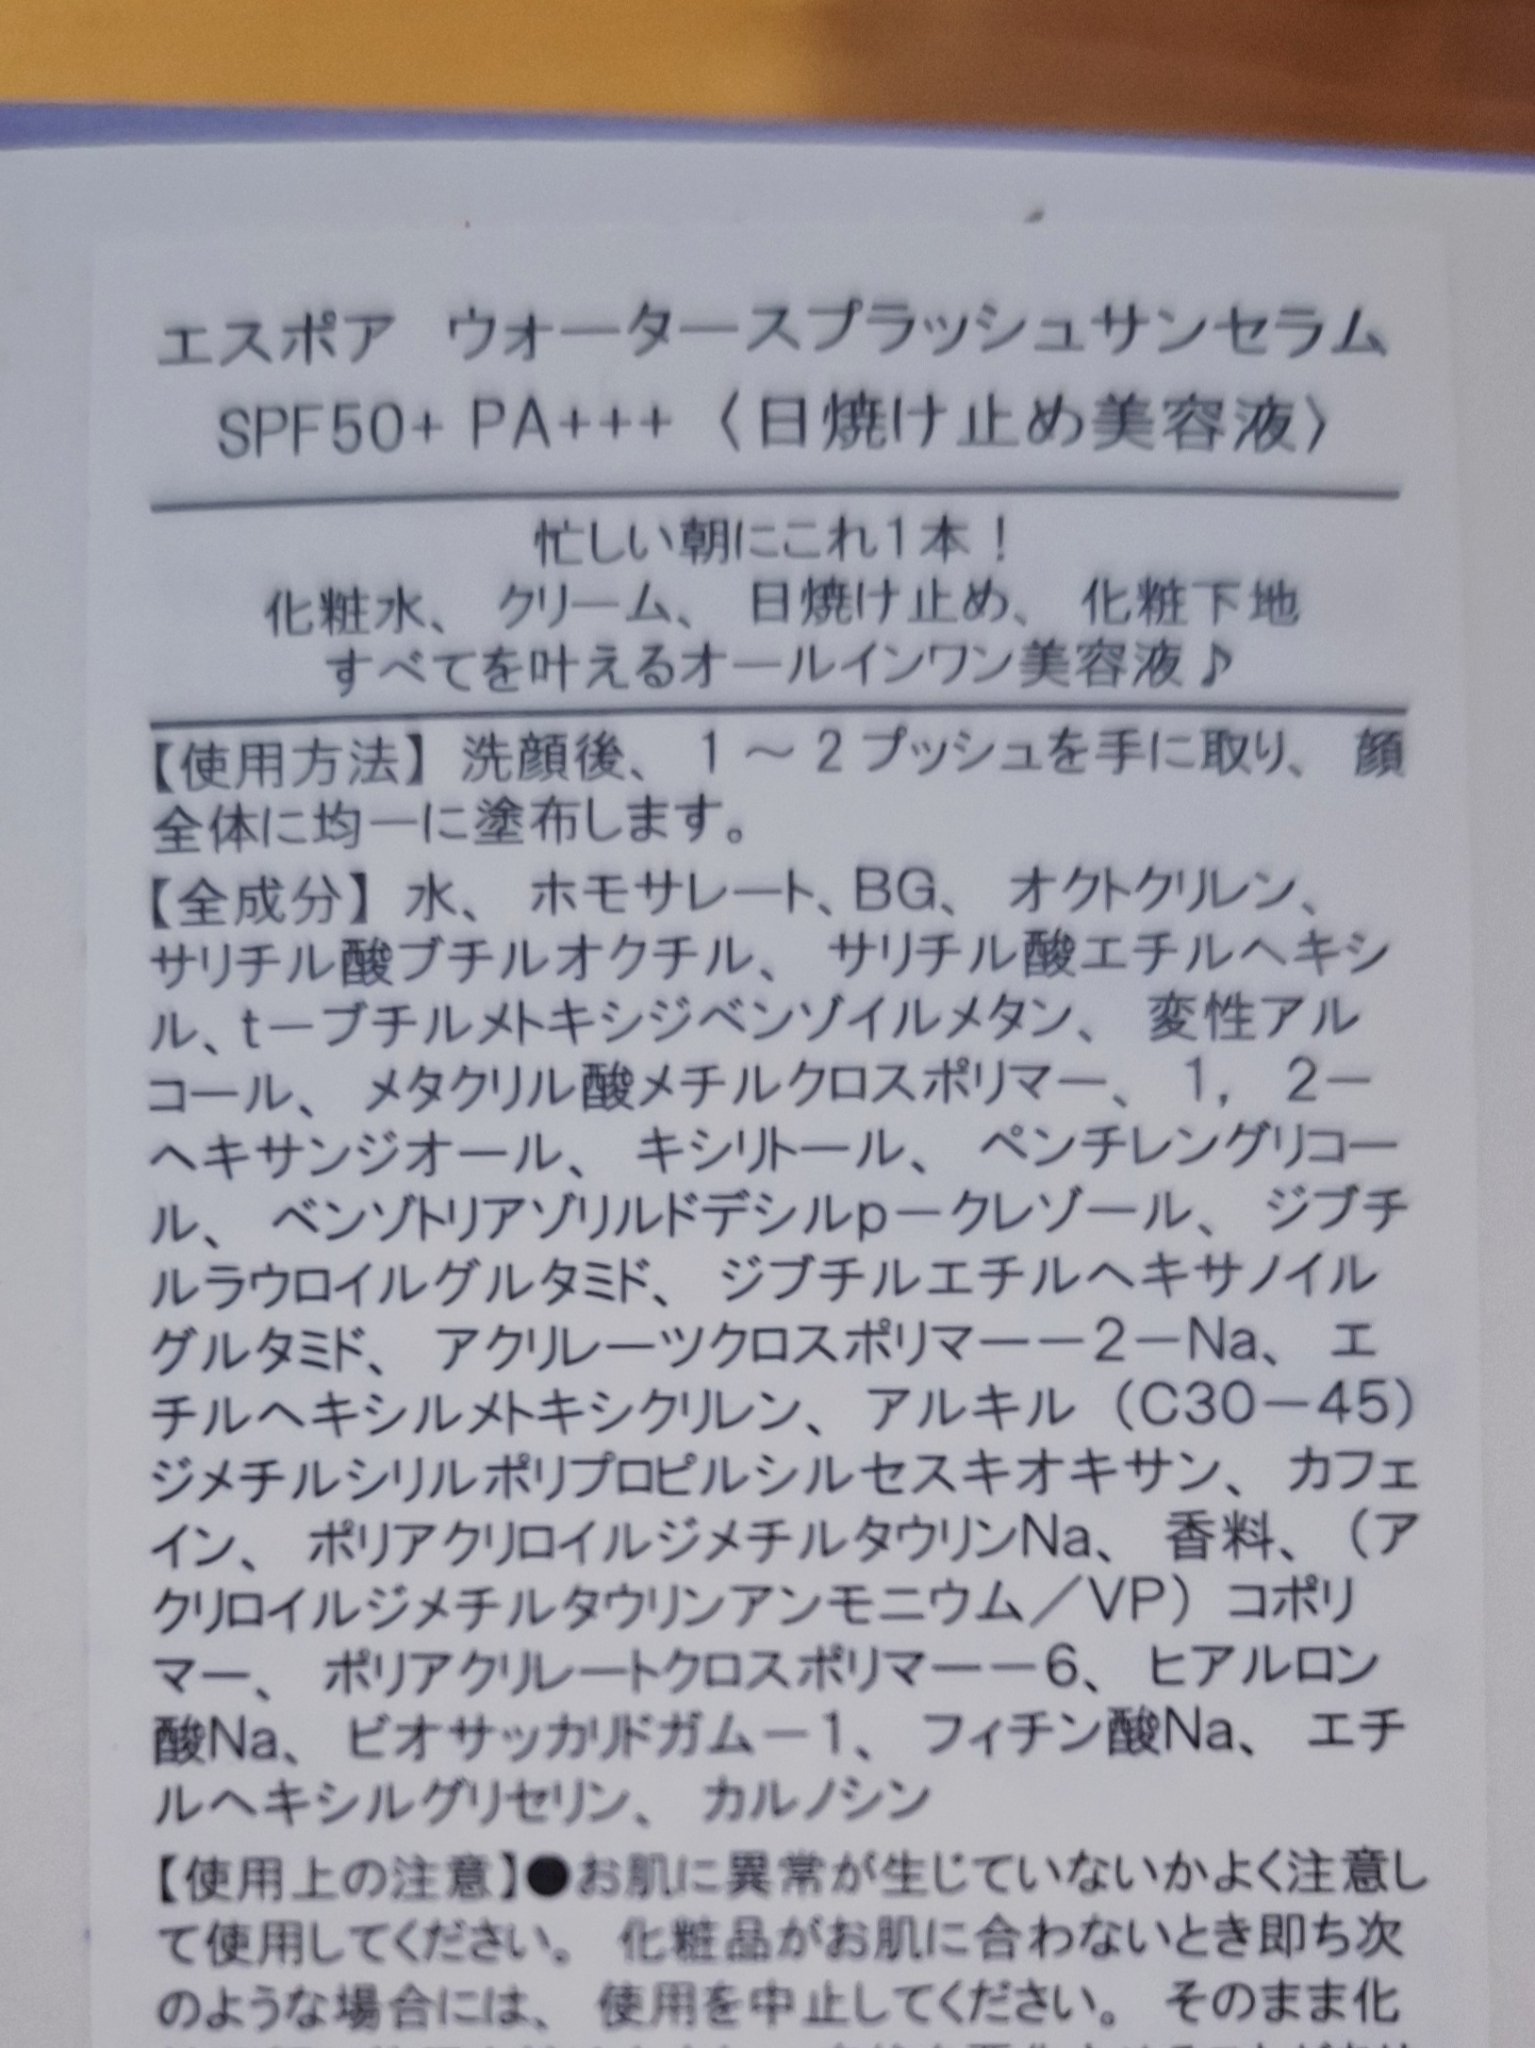 エスポア ウォータースプラッシュサンセラム
SPF50+ PA+++〈日焼け止め美容液〉
忙しい朝にこれ1本!
化粧水、クリーム、日焼け止め、化粧下地
すべてを叶えるオールインワン美容液♪
【使用方法】洗顔後、1～2プッシュを手に取り、顔
全体に均一に塗布します。
【全成分】水、ホモサレート、BG、オクトクリレン、
サリチル酸ブチルオクチル、サリチル酸エチルヘキシ
ル、t－ブチルメトキシジベンゾイルメタン、変性アル
コール、メタクリル酸メチルクロスポリマー、1，2－
ヘキサンジオール、キシリトール、ペンチレングリコー
ル、ベンゾトリアゾリルドデシルp－クレゾール、ジブチ
ルラウロイルグルタミド、ジブチルエチルヘキサノイル
グルタミド、アクリレーツクロスポリマー－2－Na、エ
チルヘキシルメトキシクリレン、アルキル（C30－45）
ジメチルシリルポリプロピルシルセスキオキサン、カフェ
イン、ポリアクリロイルジメチルタウリンNa、香料、（ア
クリロイルジメチルタウリンアンモニウム／VP）コポリ
マー、ポリアクリレートクロスポリマー－6、ヒアルロン
酸Na、ビオサッカリドガム－1、フィチン酸Na、エチ
ルヘキシルグリセリン、カルノシン
【使用上の注意】●お肌に異常が生じていないかよく注意し
て使用してください。化粧品がお肌に合わないとき即ち次
のような場合には、使用を中止してください。そのまま化